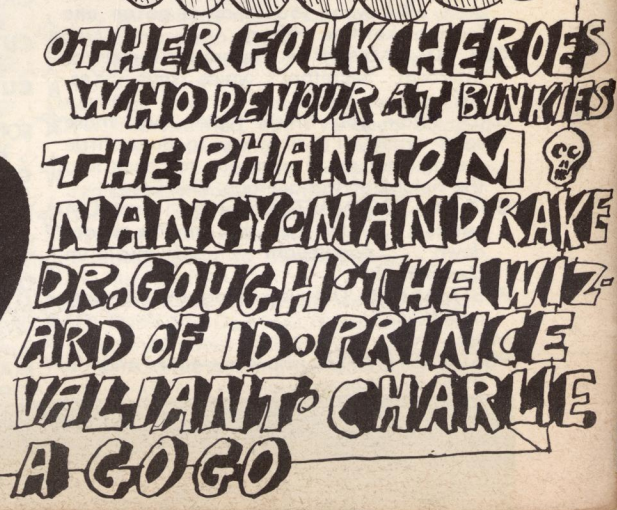 OTHER FOLK HEROES
WHO DEVOUR AT BINKIES
THE PHANTOM
NANCY•MANDRAKE
DR.GOUGH•THE WIZ-
ARD OF ID•PRINCE
VALIANT• CHARLIE
A GO GO